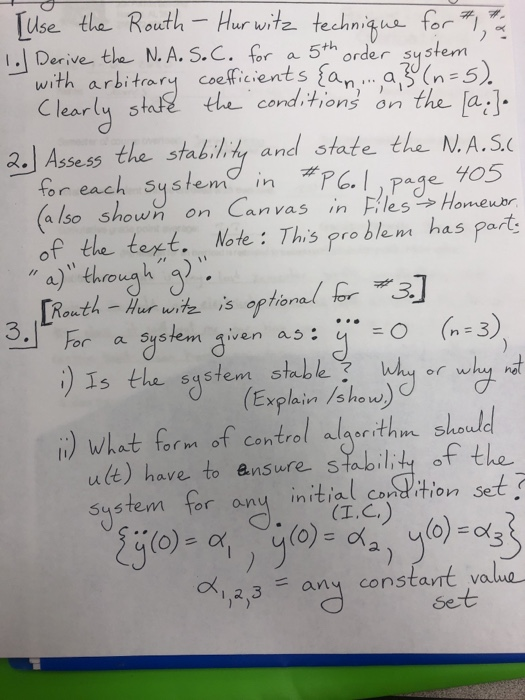 [Use the Routh - Hurwitz technique for #1, #2
1.] Derive the N.A.S.C. for a 5th order system
with arbitrary coefficients {an, ... a1} (n=5).
Clearly state the conditions on the [ai].
2.] Assess the stability and state the N.A.S.C
for each system in #P6.1, page 405
(also shown on Canvas in Files → Homewor
of the text. Note: This problem has parts
"a)" through "g)".
[Routh - Hurwitz is optional for #3.]
3.] For a system given as: y⃛ = 0 (n=3),
i) Is the system stable? Why or why not
(Explain /show.)
ii) What form of control algorithm should
u(t) have to ensure stability of the
system for any initial condition set?
(I.C.)
{ÿ(0) = α1, ẏ(0) = α2, y(0) = α3}
α1,2,3 = any constant value
set